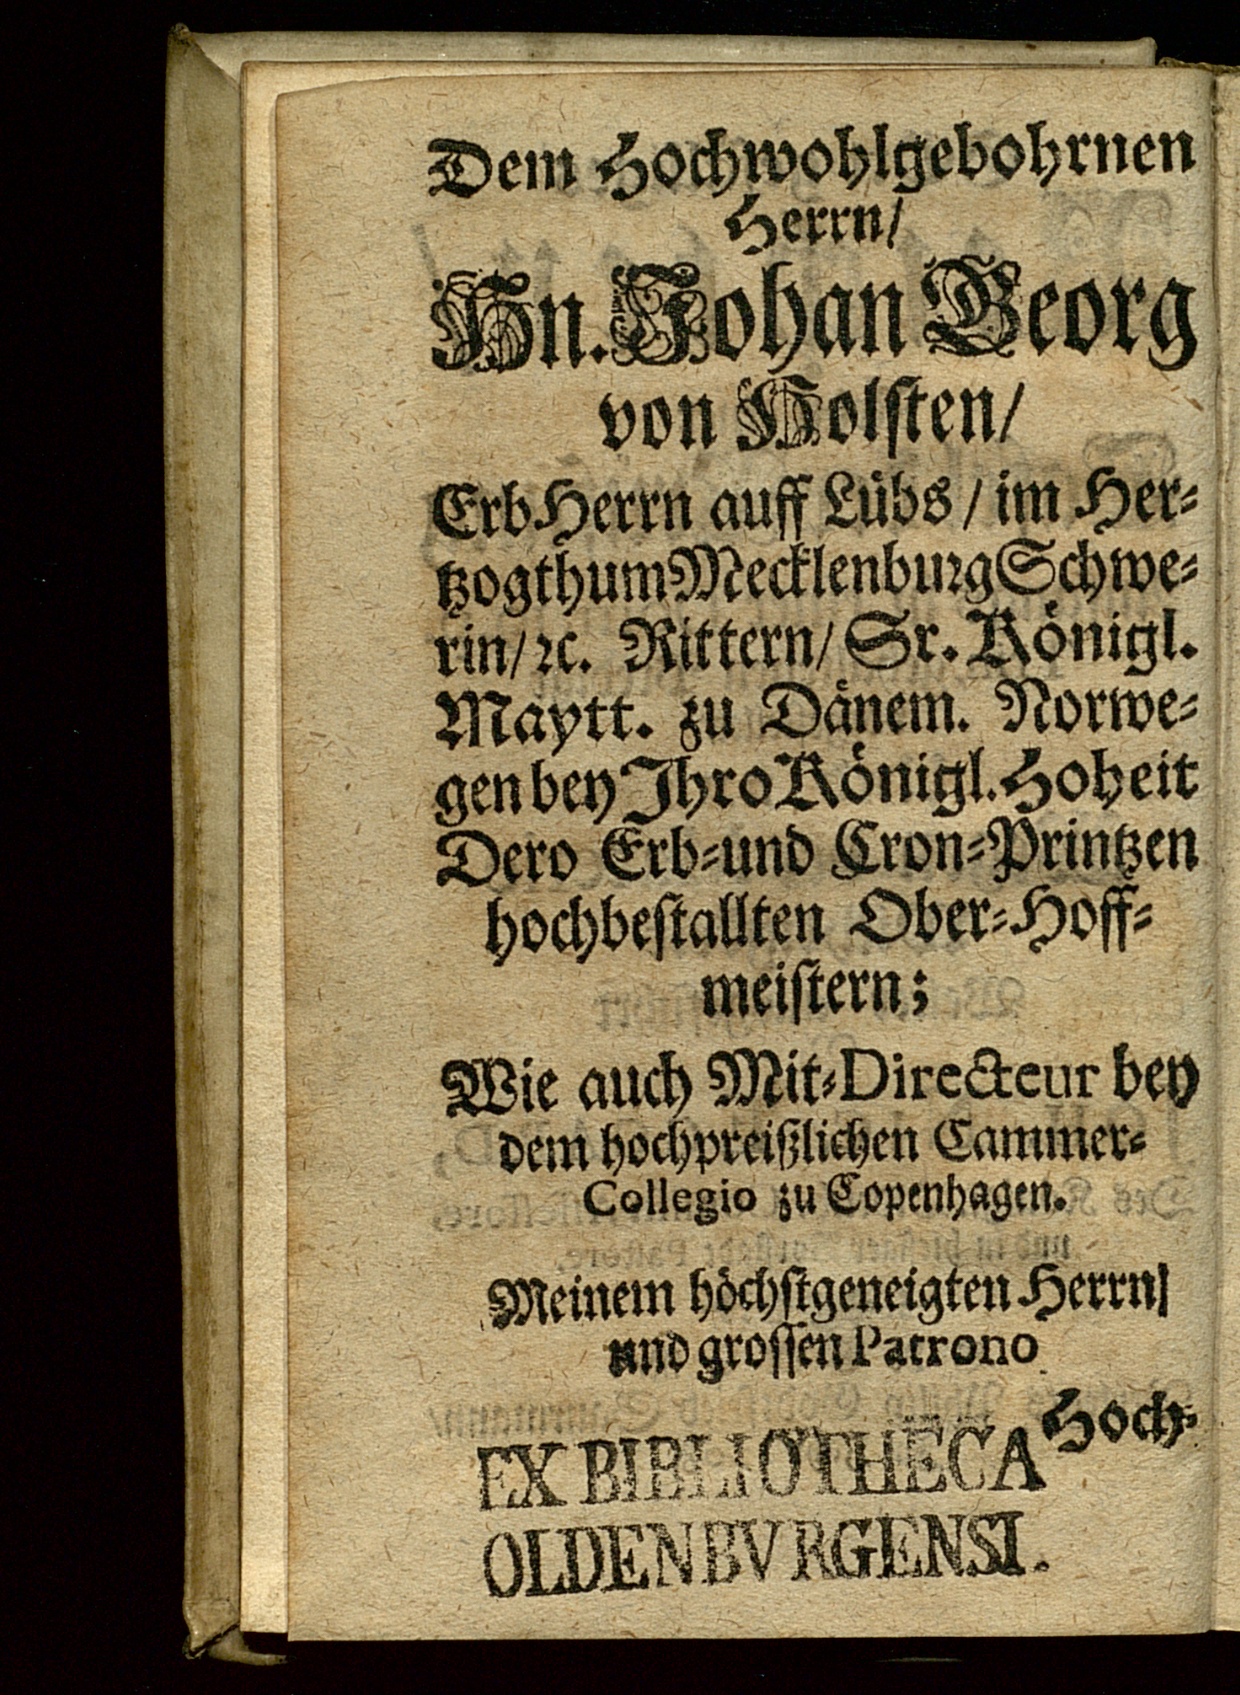 Dem Hochwohlgebohrnen
Herrn/
Hn. Johan Georg
von Holsten/
ErbHerrn auff Lübs / im Her-
tzogthum Mecklenburg Schwe-
rin/ ꝛc. Rittern/ Sr. Königl.
Maytt. zu Dänem. Norwe-
gen bey Ihro Königl. Hoheit
Dero Erb-und Cron-Printzen
hochbestallten Ober-Hoff-
meistern;
Wie auch Mit-Directeur bey
dem hochpreißlichen Cammer-
Collegio zu Copenhagen.
Meinem höchstgeneigten Herrn/
und grossen Patrono
Hoch-
EX BIBLIOTHECA
OLDENBVRGENSI.